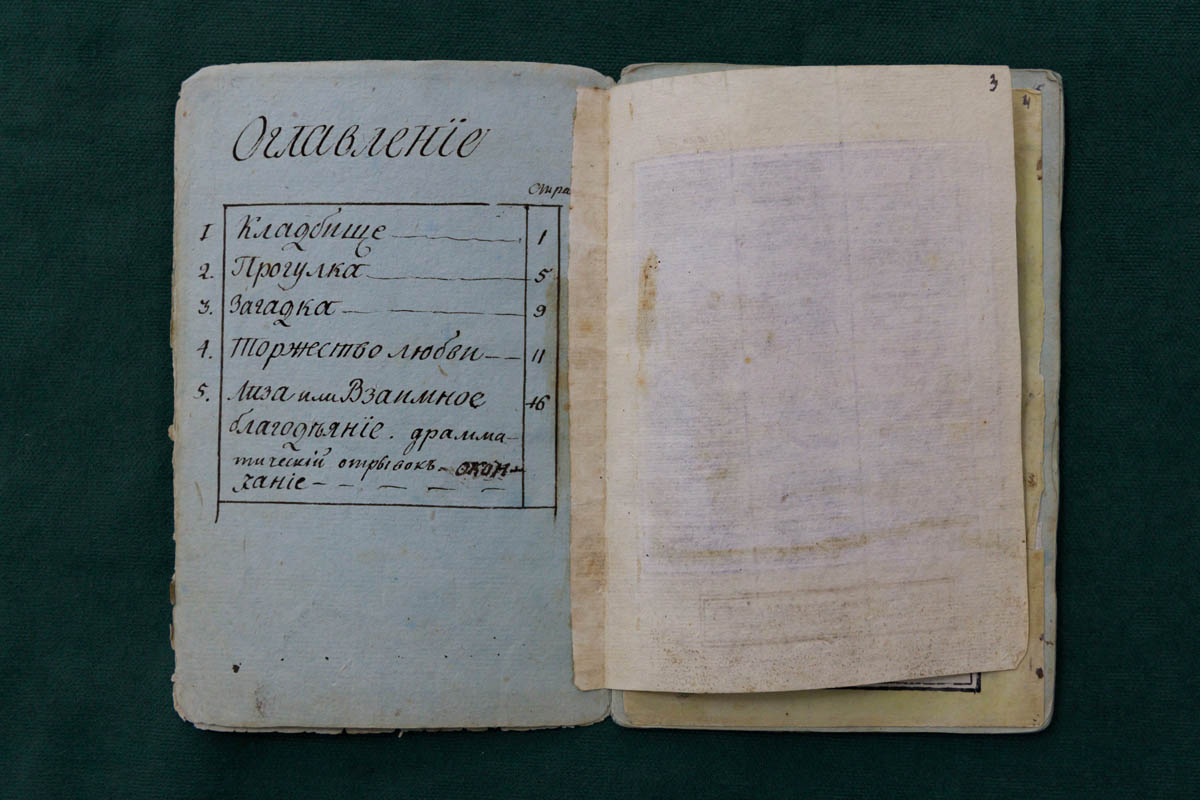 Оглавленїе
Стра
1 Кладбище 1
2. Прогулка 5
3. Загадка 9
4. Торжество любви 11
5. Лиза или Взаимное 16
благодѣянїе. драмма-
тическїй отрывокъ - окон-
чанїе
3
4